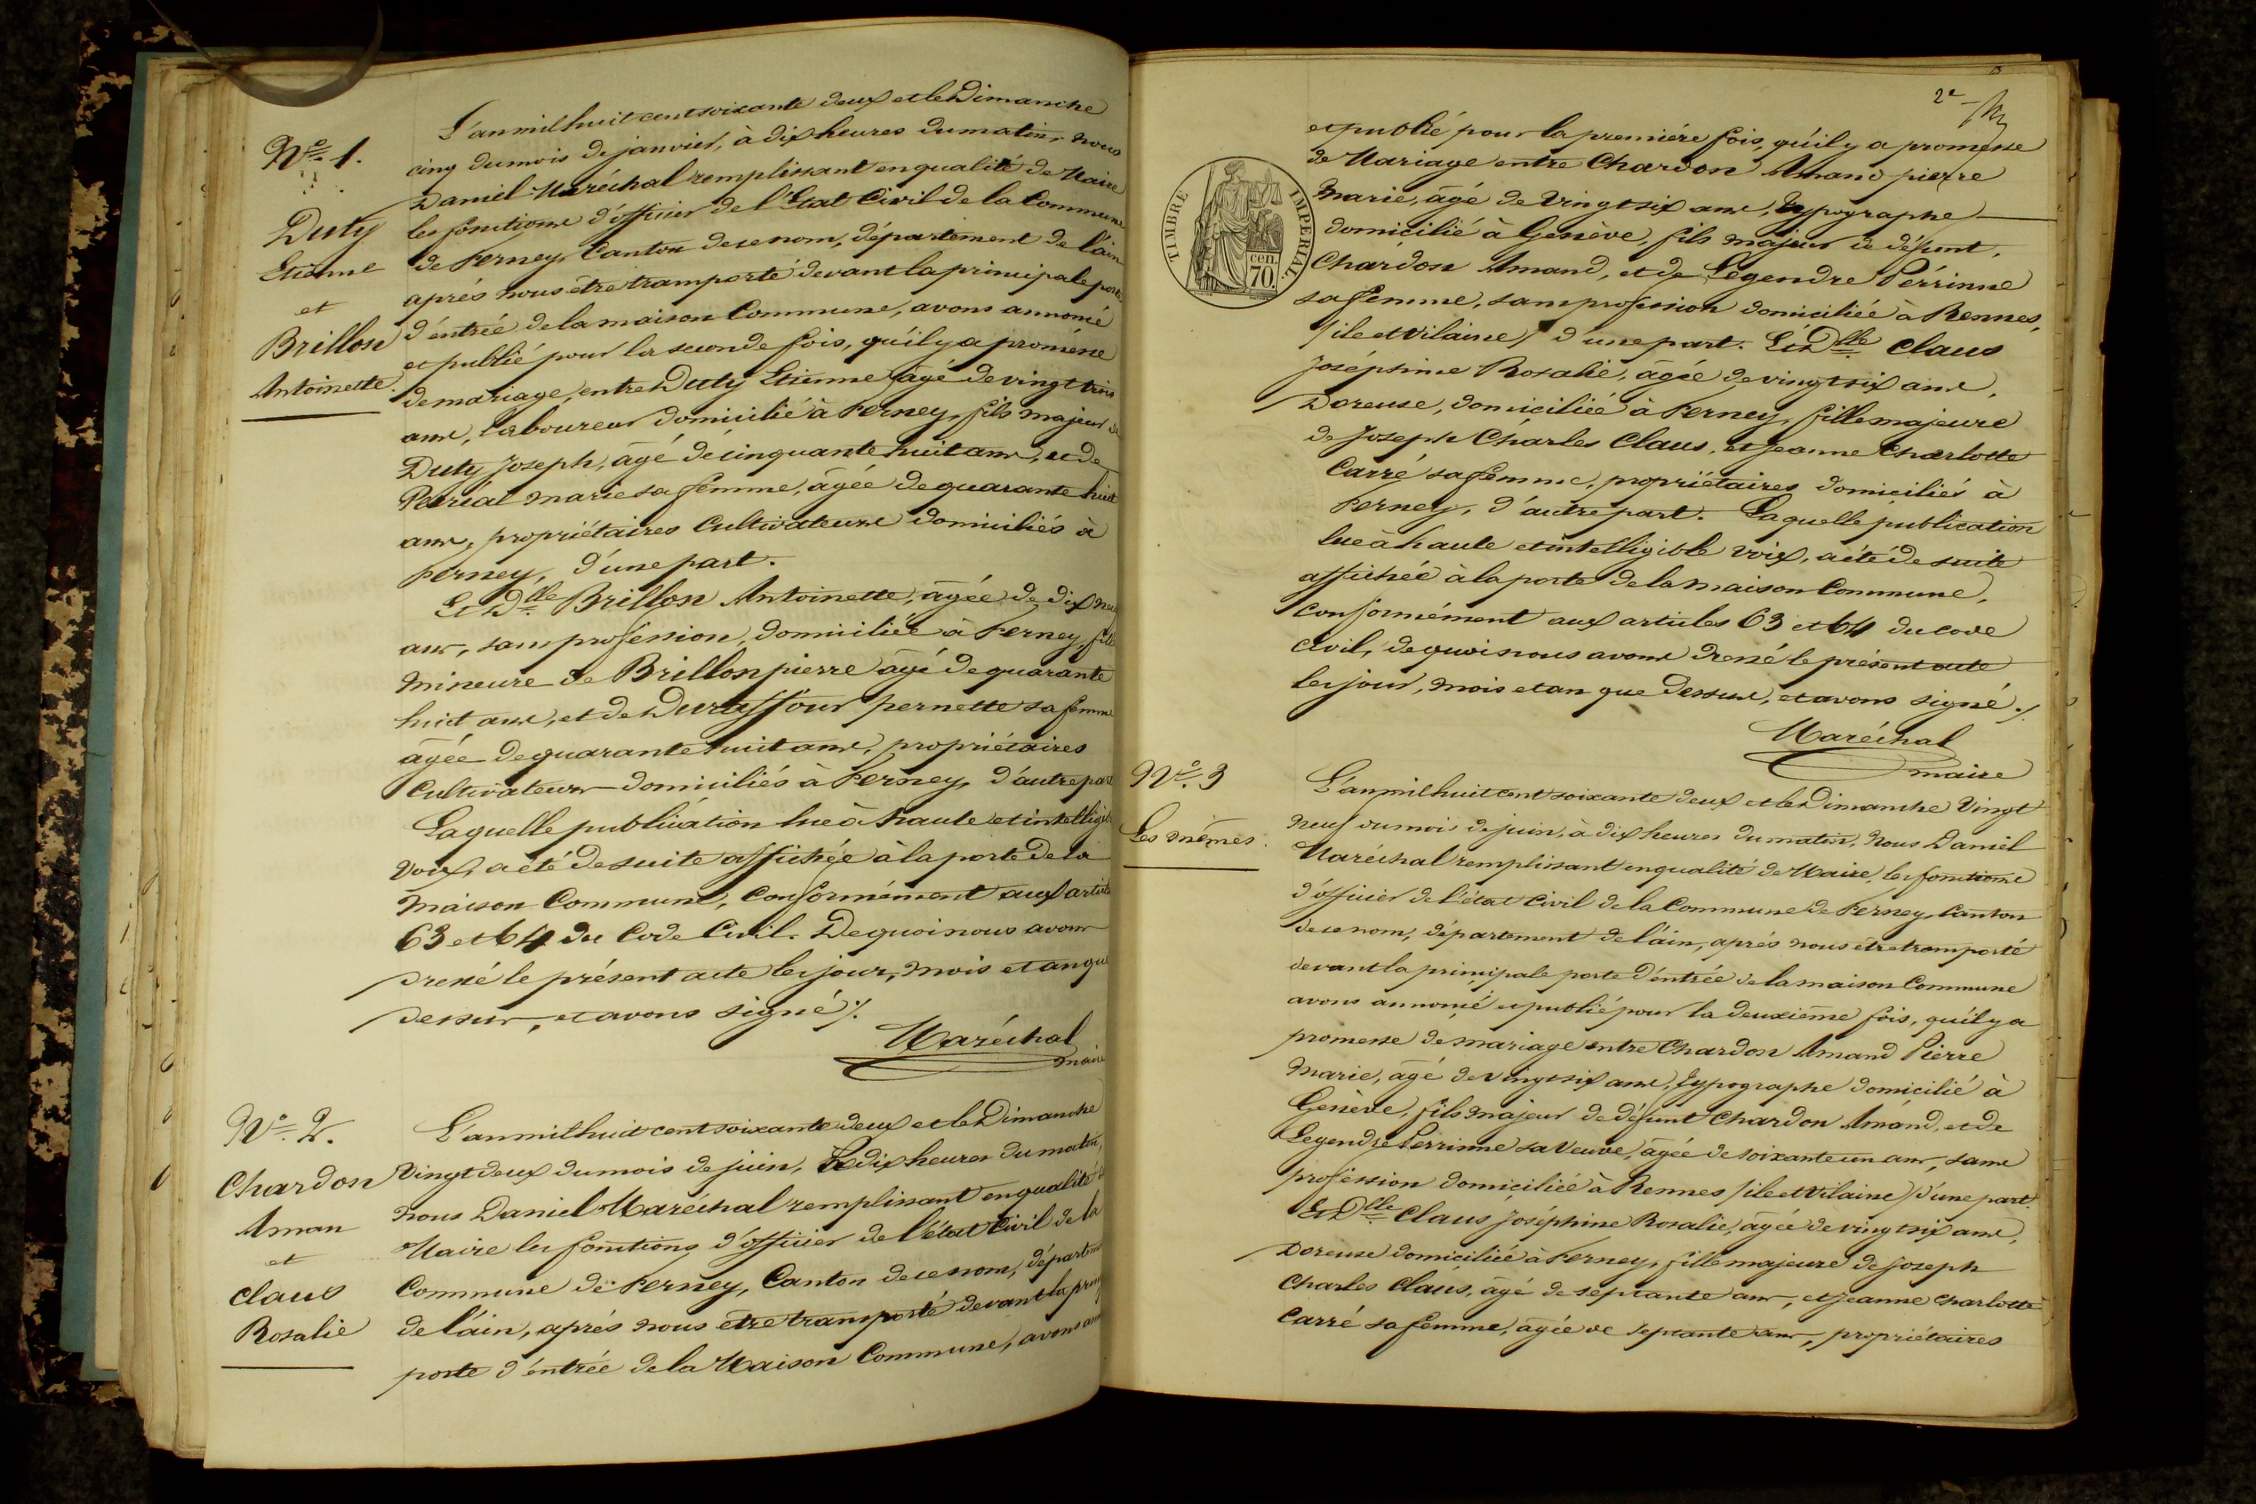 N.º 1.
Duty
Etienne
et
Brillon
Antoinette.
L'an mil huit cent soixante deux et le Dimanche
cinq du mois de janvier, à dix heures du matin, nous
Daniel Maréchal remplissant en qualité de Maire
les fonctions d'officier de l'Etat Civil de la Commune
de Ferney, Canton de ce nom, département de l'ain
après nous être transporté devant la principale porte
d'éntrée de la maison Commune, avons annoncé
et publié pour la seconde fois, qu'il y a promesse
de mariage, entre Duty Etienne âgé de vingt trois
ans, laboureur domicilié à Ferney, fils majeur de
Duty Joseph, âgé de cinquante huit ans, et de
marie sa femme, âgée de quarante huit
ans, propriétaires Cultivateurs domiciliés à
Ferney, d'une part.
Et Dlle Brillon Antoinette, âgée de dix neuf
ans, sans profession, domiciliée à Ferney, fille
mineure de Brillon pierre âgé de quarante
huit ans, et de Duraffour pernette sa femme
âgée de quarante huit ans, propriétaires
Cultivateurs domiciliés à Ferney, d'autre part
Laquelle publication lue à haute et intelligible
voix, a été de suite affichée à la porte de la
maison Commune, Conformément aux articles
63 et 64 du Code Civil. De quoi nous avons
dressé le présent acte les jour, mois et an que
dessus, et avons signé ./.
Maréchal
maire
N.º 2.
Chardon
Aman
et
Claus
Rosalie
L'an mil huit cent soixante deux et le Dimanche
vingt deux du mois de juin, à dix heures du matin,
nous Daniel Maréchal remplissant en qualité de
Maire les fonctions d'officier de l'état Civil de la
Commune de Ferney, Canton de ce nom, département
de l'ain, après nous être transporté devant la princip
porte d'éntrée de la Maison Commune, avons ann
2e
et publié pour la première fois, qu'il y a promesse
de Mariage entre Chardon Amand pierre
Marie, âgé de Vingt six ans, typographe
domicilié à Genève, fils majeur de défunt
Chardon Amand, et de Legendre Pérrinne
sa femme, sans profession domiciliée à Rennes,
(ile et Vilaine) d'une part. Et Dlle Claus
Joséphine Rosalie, âgée de vingt six ans,
Doreuse, domiciliée à Ferney, fille majeure
de Joseph Charles Claus, et Jeanne Charlotte
Carré sa femme, propriétaires domiciliés à
Ferney, d'autre part. Laquelle publication
lue à haute et intelligible voix, a été de suite
affichée à la porte de la maison Commune,
conformément aux articles 63 et 64 du code
civil, de quoi nous avons dressé le présent acte
les jour, mois et an que dessus, et avons signé ./.
Maréchal
maire
TIMBRE IMPERIAL.
CEN.
70.
N.º 3
Les mêmes.
L'an mil huit cent soixante deux et le Dimanche Vingt
neuf du mois de juin, à dix heures du matin, Nous Daniel
Maréchal remplissant en qualité de Maire, les fonctions
d'officier de l'état Civil de la Commune de Ferney, Canton
de ce nom, département de l'ain, après nous être transporté
devant la principale porte d'éntrée de la maison Commune
avons annoncé et publié pour la deuxième fois, qu'il y a
promesse de mariage entre Chardon Amand Pierre
Marie, âgé de vingt six ans, typographe domicilié à
Genève, fils majeur de défunt Chardon Amand, et de
Legendre Perrinne sa Veuve, âgée de soixante un ans, sans
profession domiciliée à Rennes (ile et Vilaine) d'une part.
Et Dlle Claus Joséphine Rosalie, âgée de vingt six ans,
Doreuse domiciliée à Ferney, fille majeure de Joseph
Charles Claus, âgé de septante ans, et Jeanne Charlotte
Carré sa femme, âgée de septante ans, propriétaires